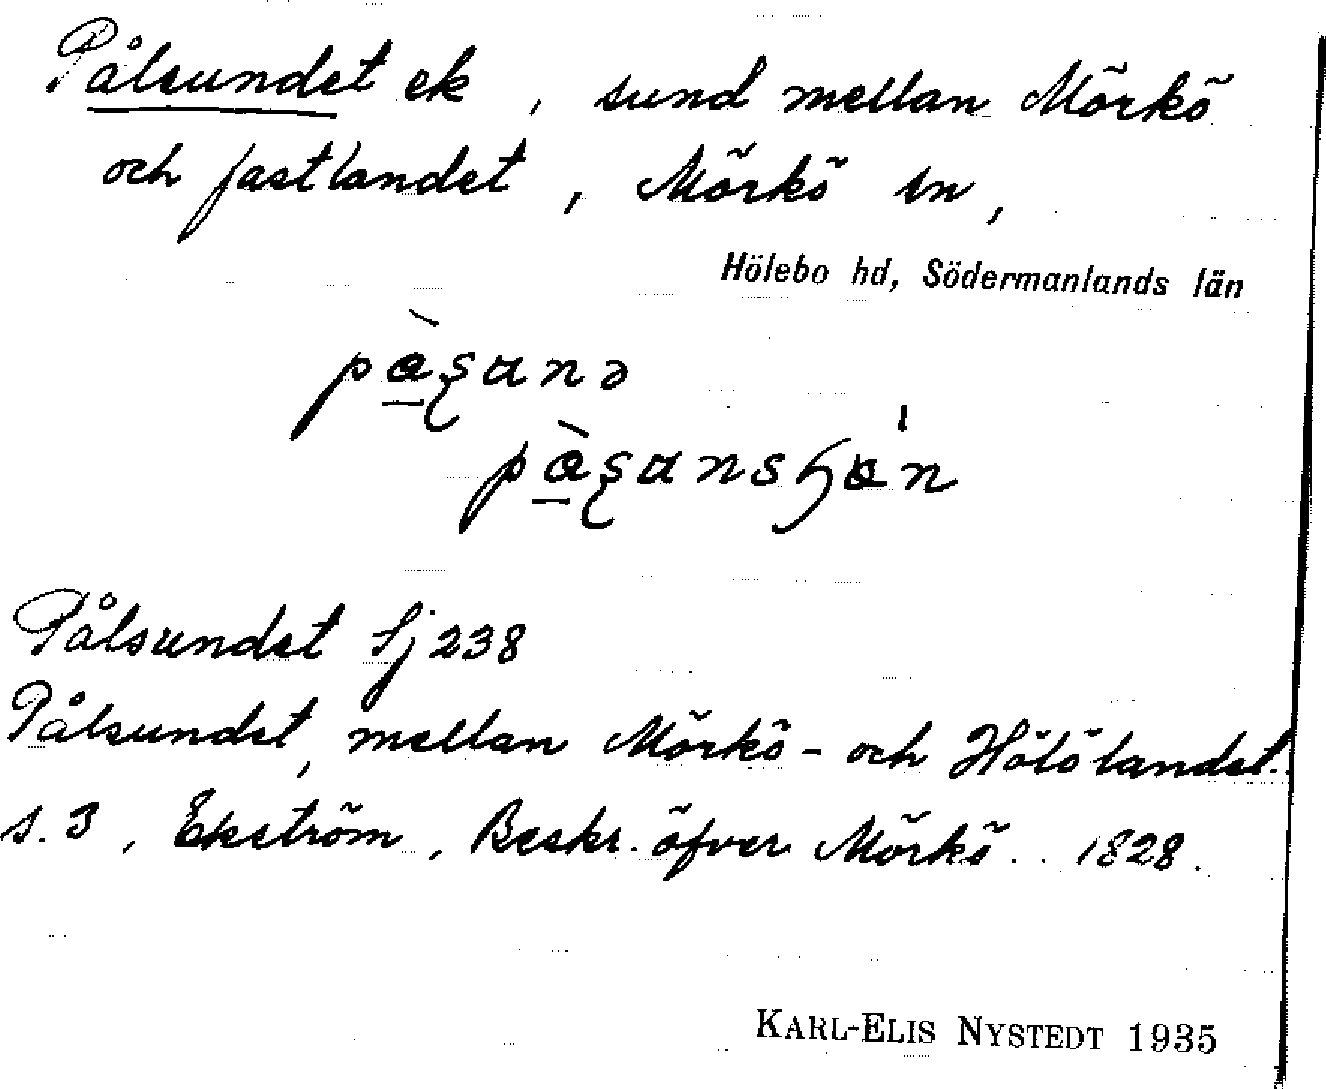 Pålsundet ek, sund mellan Mörkö
och fastlandet, Mörkö sn,
Hölebo hd, Södermanlands län
Pålsundet Sj 238
Pålsundet, mellan Mörkö- och Hölölandet.
s. 3, Ekström, Beskr. öfver Mörkö. 1828.
KARL-ELIS NYSTEDT 1935